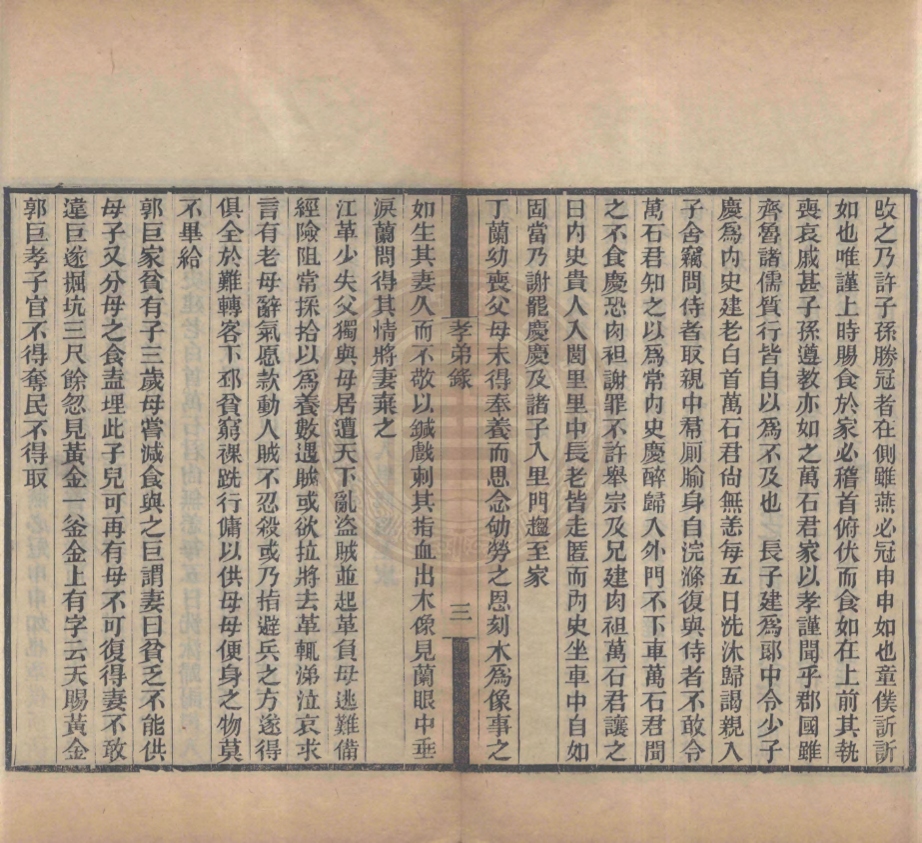 改之乃許子孫勝冠者在側雖燕必冠申申如也童僕訢訢
如也唯謹上時賜食於家必稽首俯伏而食如在上前其執
喪哀戚甚子孫遵教亦如之萬石君家以孝謹聞乎郡國雖
齊魯諸儒質行皆自以為不及也 長子建為郎中令少子
慶為內史建老白首萬石君尙無恙每五日洗沐歸謁親入
子舍竊問侍者取親中帬厠牏身自浣滌復與侍者不敢令
萬石君知之以為常內史慶醉歸入外門不下車萬石君聞
之不食慶恐肉袒謝罪不許舉宗及兄建肉袒萬石君讓之
曰內史貴人入閭里里中長老皆走匿而內史坐車中自如
固當乃謝罷慶慶及諸子入里門趨至家
丁蘭幼喪父母未得奉養而思念劬勞之恩刻木為像事之
孝弟錄
三
如生其妻久而不敬以鍼戲刺其指血出木像見蘭眼中垂
淚蘭問得其情將妻棄之
江革少失父獨與母居遭天下亂盜賊並起革負母逃難備
經險阻常採拾以為養數遇賊或欲拉將去革輒涕泣哀求
言有老母辭氣愿款動人賊不忍殺或乃指避兵之方遂得
俱全於難轉客下邳貧窮裸跣行傭以供母母便身之物莫
不畢給
郭巨家貧有子三歲母嘗減食與之巨謂妻曰貧乏不能供
母子又分母之食盍埋此子兒可再有母不可復得妻不敢
違巨遂掘坑三尺餘忽見黃金一釜金上有字云天賜黃金
郭巨孝子官不得奪民不得取